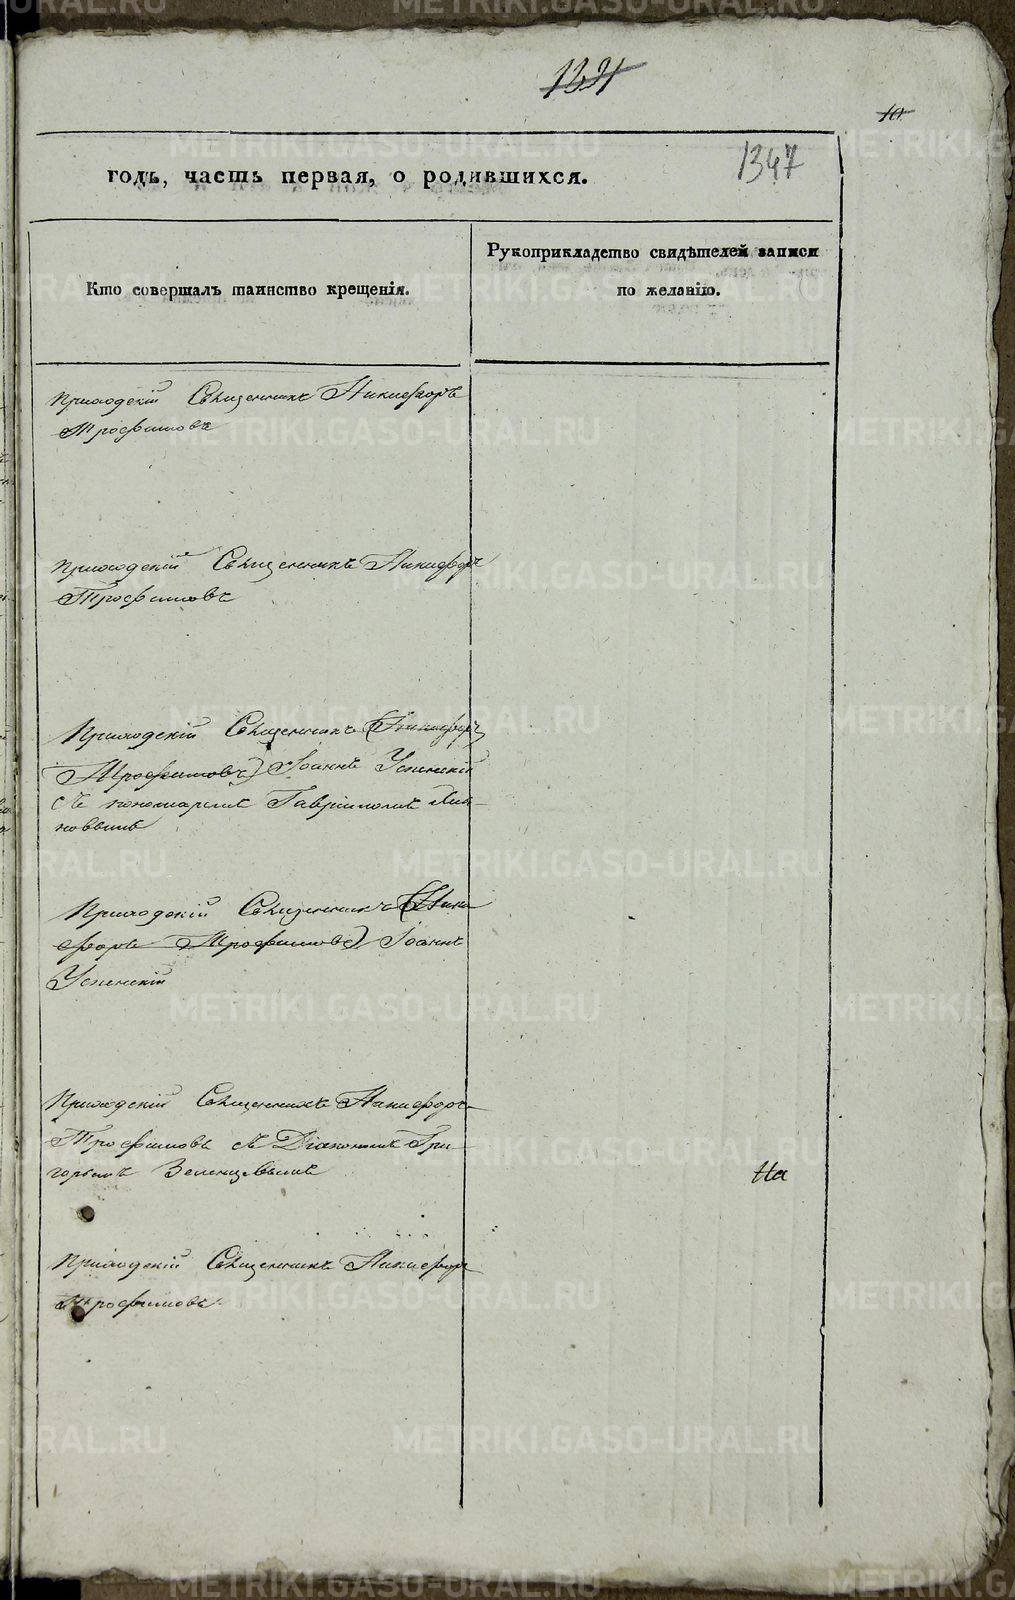 1321
10
1347
годъ, часть первая, о родившихся.
Кто совершалъ таинство крещенія.
Рукоприкладство свидѣтелей записи
по желанію.
Приходскій Священникъ Никифоръ
Трофимовъ
Приходскій Священникъ Никифоръ
Трофимовъ
Приходскій Священникъ (Никифоръ
Трофимовъ) Іоаннъ Успенскій
съ пономаремъ Гавріиломъ
Приходскій Священникъ (Ники
форъ Трофимовъ) Іоаннъ
Успенскій
Приходскій Священникъ Никифоръ
Трофимовъ съ Діакономъ Гри-
горьемъ
На
Приходскій Священникъ Никифоръ
Трофимовъ
METRIKI.GASO-URAL.RU